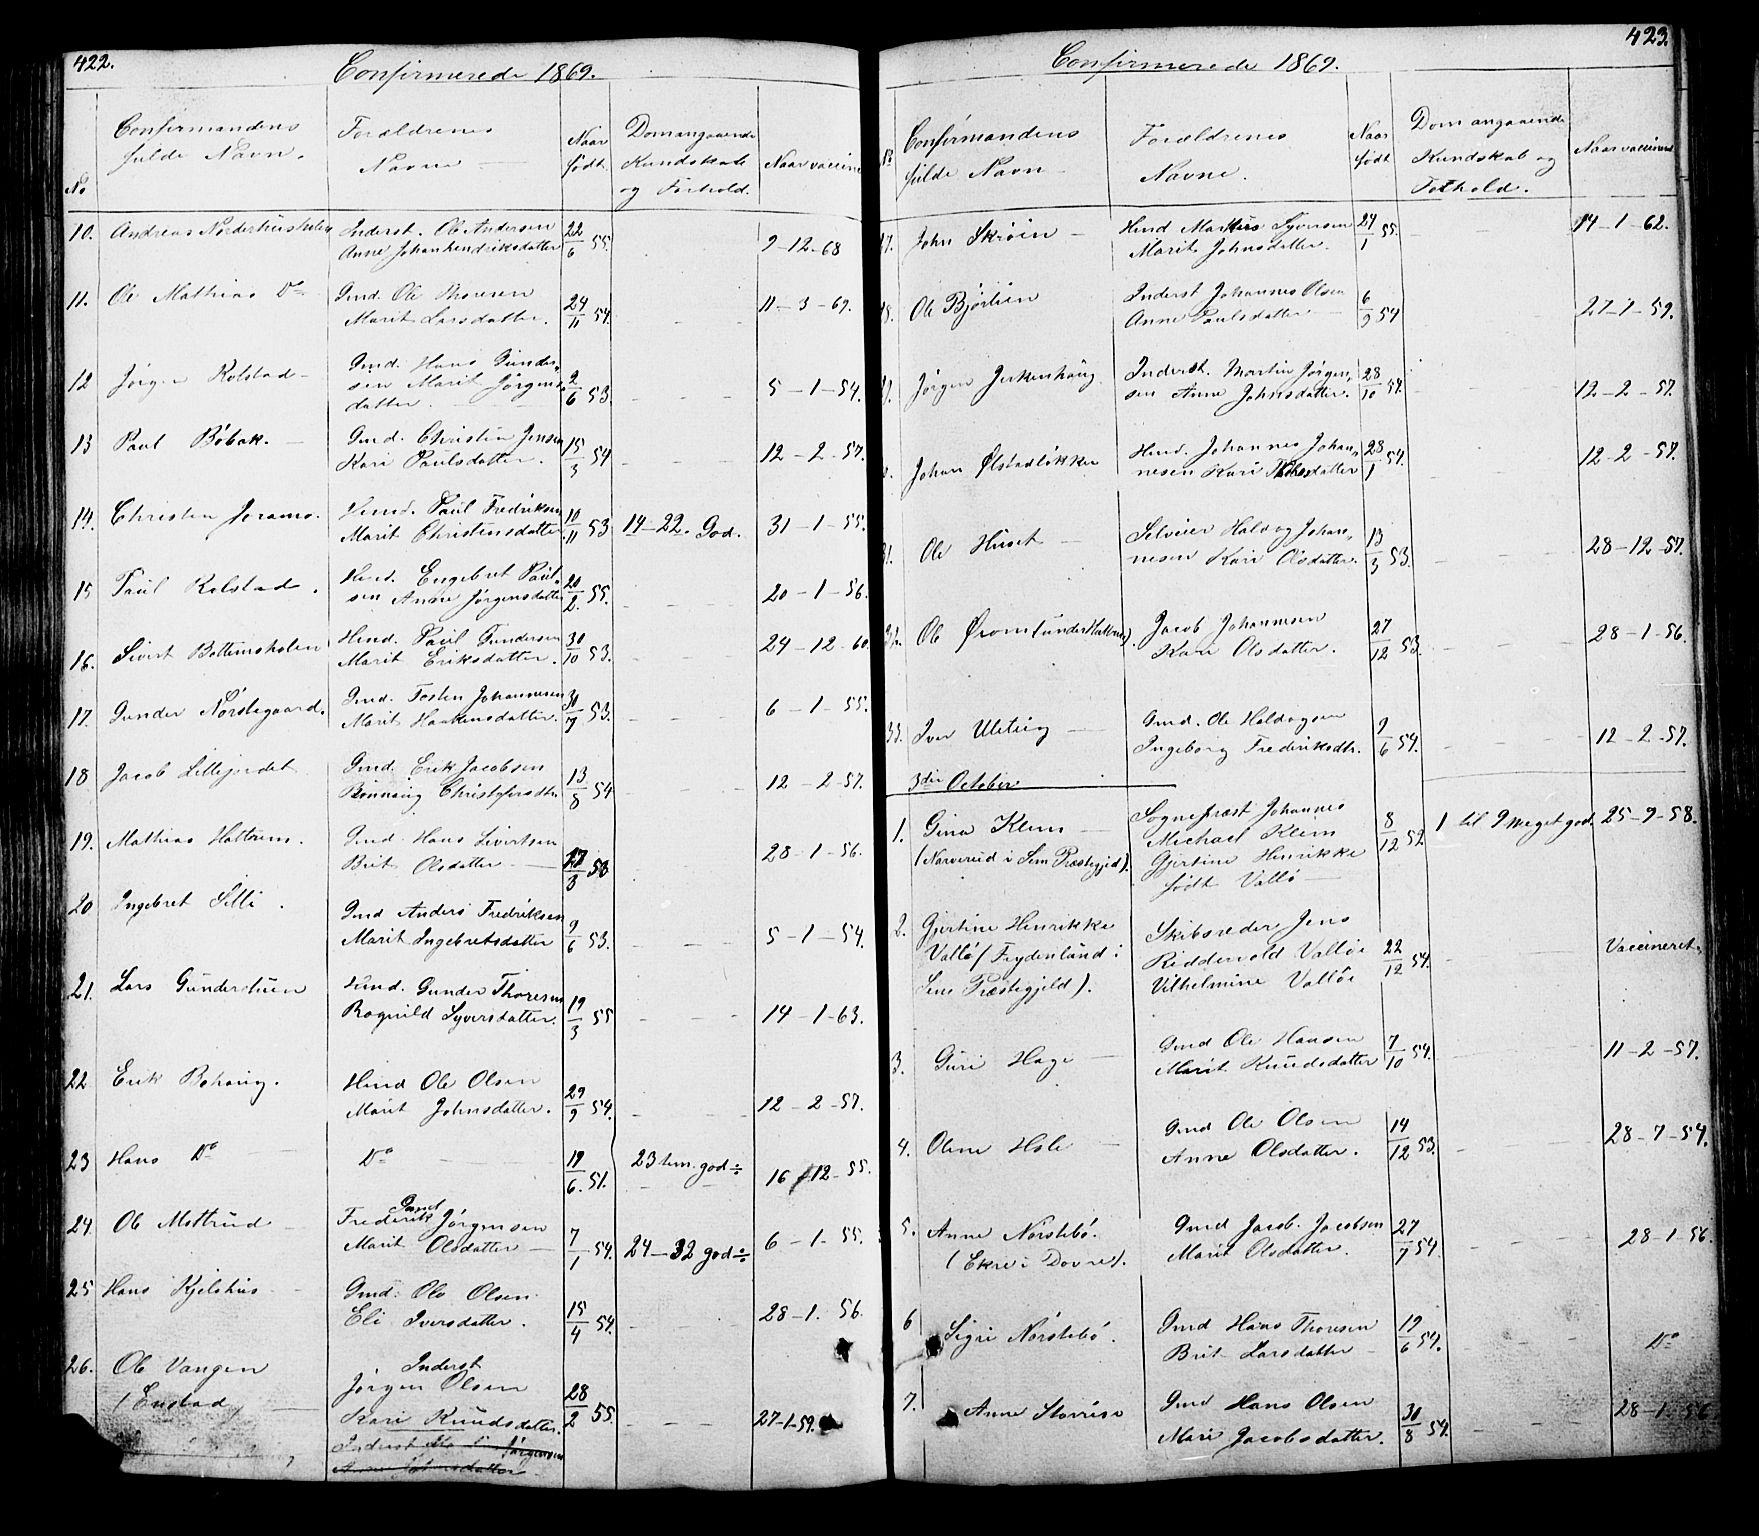 422.
Confirmerede 1869.
No
Confirmandens
fulde Navn.
Forældrenes
Navne
Naar
født.
Dom angaaende
Kundskab
og Forhold.
Naar vaccine
10. Andreas Nørderhusholen
Inderst. Ole Andersen
Anne Johanhendriksdatter
22/6 55.
9-12-68
11. Ole Mathias Do
Gmd. Ole Thoresen
Marit Larsdatter.
24/11 54.
11-3-69.
12 Jørgen Kolstad
Gmd. Hans Gunder„
sen Marit Jørgens„
datter.
2/6 53.
5-1-54.
13 Paul Böbak.
Gmd. Christen Jensen
Kari Paulsdatter.
15/3 54
12-2-57.
14. Christen Joramo.
Hmd. Paul Fredriksen
Marit Christensdatter
10/11 53
14-22. God.
31-1-55.
15 Paul Kolstad.
Hmd. Engebret Paul„
sen Anne Jørgensdatter
20/2. 55.
20-1-56.
16. Sivert Bottemsholen
Hmd. Paul Gundersen
Marit Eriksdatter.
30/10 53.
24-12-60.
17. Gunder Nørstegaard.
Gmd. Tosten Johannesen
Marit Haakensdatter.
31/7 53.
6-1-55.
18 Jacob Lillejordet
Gmd. Erik Jacobsen
Rønnaug Christofersdtr.
13/8 54
12-2-57.
19. Mathias Hattrem.
Gmd. Hans Sivertsen
Brit Olsdatter
27/3 53
28-1-56.
20 Ingebret Selli.
Gmd Anders Fredriksen
Marit Ingebretsdatter
9/6 53.
5-1-54.
21. Lars Gunderstuen
Hmd. Gunder Thoresen
Ragnild Syversdatter.
19/3 55
14-1-63.
22 Erik Bohaug.
Hmd Ole Olsen
Marit Johnsdatter.
29/9 54.
12-2-57.
23 Hans Do
Do
19/6. 51.
23 tem. god ÷
16-12-55.
24. Ole Mottrud
Gmd
Frederik Jørgensen
Marit Olsdatter
7/1 54.
24-32 god ÷
6-1-55.
25 Hans Kjelshus
Gmd. Ole Olsen
Eli Iversdatter.
15/4 54.
28-1-56.
26. Ole Vangen
(Enstad
Inderst
Jørgen Olsen
Kari Knudsdatter.
28/2 55.
27-1-59.
Inderst Jørgensen
Anne Johnsdatter
423.
Confirmerede 1869.
No
Confirmandens
fulde Navn
Forældrenes
Navne.
Naar
født
Dom angaaende
Kundskab og
Forhold.
Naar vaccineret
27. John Skröin
Hmd Mathias Syversen
Marit Johnsdatter.
24/1 55.
14-1-62.
28. Ole Bjørlien
Inderst Johannes Olsen
Anne Paulsdatter
6/9 54
27-1-59.
29. Jørgen Jerkenhaug
Inderst. Martin Jørgen„
sen Anne Johnsdatter.
28/10 54.
12-2-57.
30. Johan Ølstadløkken
Hmd. Johannes Johan„
nesen Kari datter
28/1 54.
12-2-57.
31. Ole Huset
Selveier Haldog Johan„
nesen Kari Olsdatter.
13/3 53.
28-12-57.
32. Ole Øvom (under Hattrem).
Jacob Johannesen
Kari Olsdatter.
27/12 53.
28-1-56.
33. Iver Uleting
Gmd. Ole Haldogsen
Ingeborg Fredriksdtr.
9/6 54.
12-2-57.
3die October
1. Gina Klem
(Narverud i Sem Præstegjeld).
Sognepræst Johannes
Michael Klem
Gjertine Henrikke
født Vallö
8/12 52
1 til 9 meget god.
25-9-58.
2. Gjertine Henrikke
Vallö (Frydenlund i
Sem Præstegjeld).
Skibsreder Jens
Riddervold Vallöe
Vilhelmine Vallöe
22/12 54.
Vaccineret
3. Guri Hage
Gmd Ole Hansen
Marit Knudsdatter
7/10 54.
11-2-57.
4. Oline Hole
Gmd Ole Olsen
Anne Olsdatter.
14/12 53.
28-7-54.
5. Anne Nørstebö.
(Ekre i Dovre).
Gmd Jacob. Jacobsen
Marit Olsdatter.
27/7 54.
28-1-56.
6 Sigri Nørstebö.
Gmd Hans Thoresen
Brit Larsdatter
19/6 54.
Do
7. Anne Storrusa
Gmd Hans Olsen
Mari Jacobsdatter.
30/8 54.
28-1-56